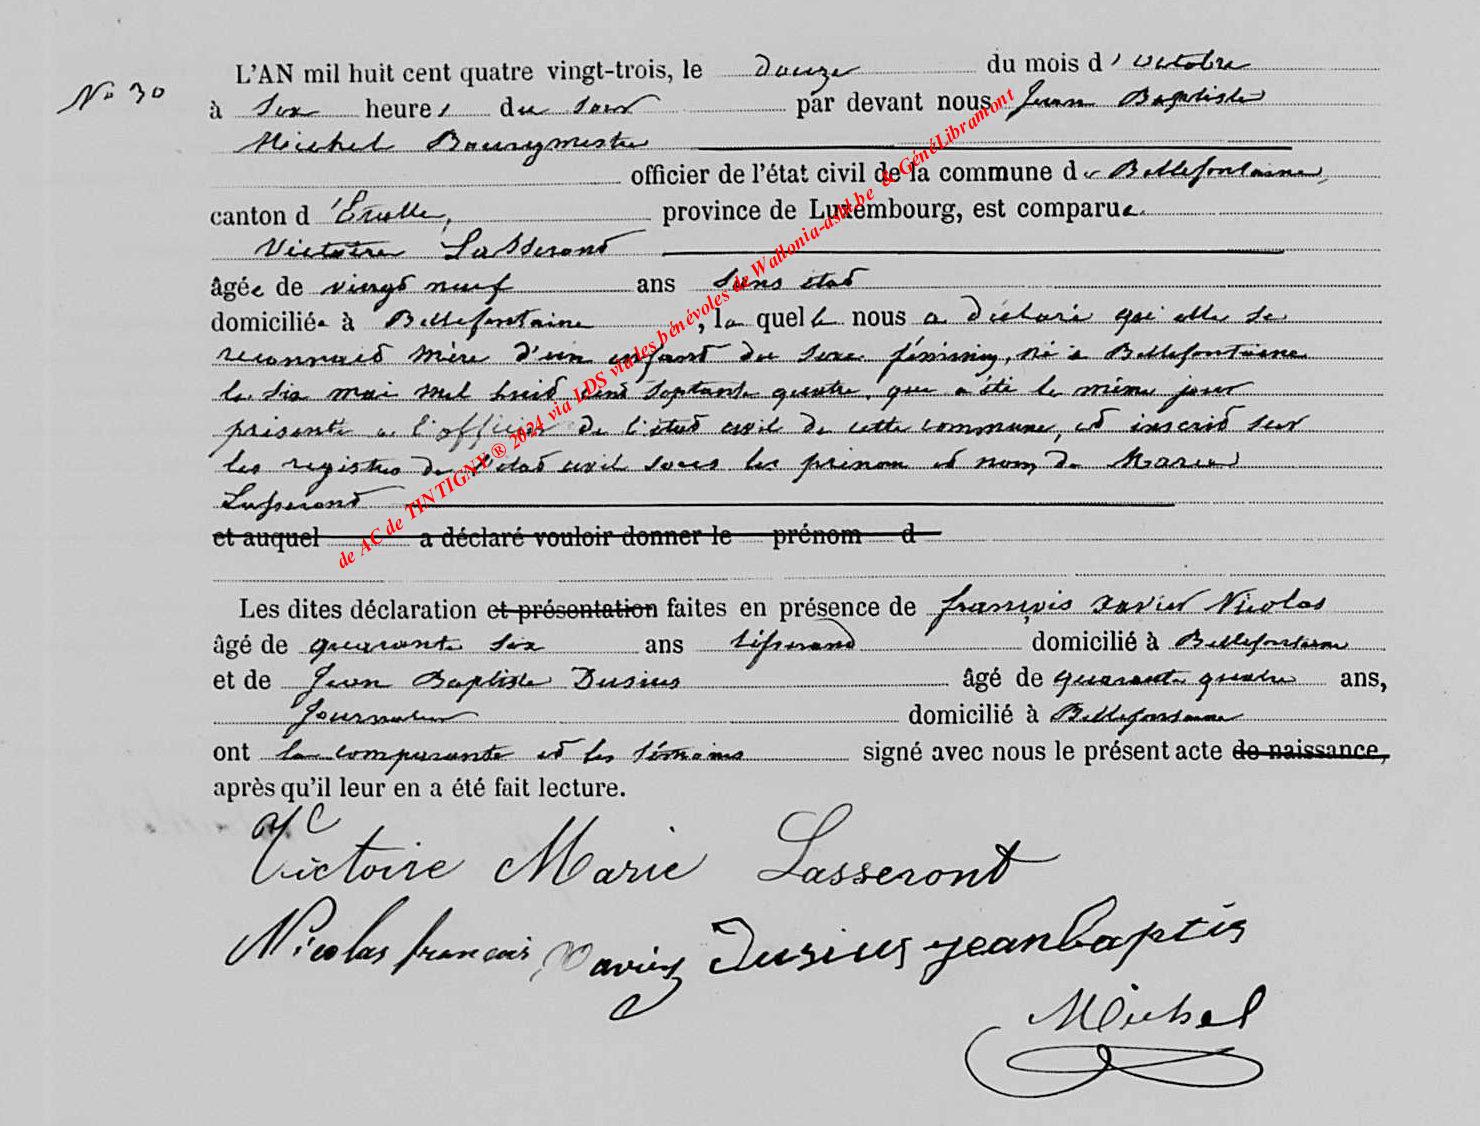 No 30
L'AN mil huit cent quatre vingt-trois, le douze du mois d'octobre
à six heures du soir par devant nous Jean Baptiste
Michel Bourgmestre
officier de l'état civil de la commune de Bellefontaine,
canton d'Étalle, province de Luxembourg, est comparue
Victoire Lasseront
âgée de vingt neuf ans sans état
domiciliée à Bellefontaine, laquelle nous a déclaré qu'elle se
reconnait mère d'un enfant du sexe féminin, né à Bellefontaine
le six mai mil huit cent septante quatre, que a été le même jour
présenté a l'officier de l'état civil de cette commune, et inscrit sur
les registres de l'état civil sous les prénom et nom de Marie
Lasseront
et auquel a déclaré vouloir donner le prénom d
Les dites déclaration et présentation faites en présence de françois Xavier Nicolas
âgé de quarante six ans tisserand domicilié à Bellefontaine
et de Jean Baptiste Dusius âgé de quarante quatre ans,
Journalier domicilié à Bellefontaine
ont la comparante et les témoins signé avec nous le présent acte de naissance,
après qu'il leur en a été fait lecture.
Victoire Marie Lasseront
Nicolas francois Xavier Dusius jean baptis
Michel
de AC de TINTIGNY ® 2024 via LDS via les bénévoles de Wallonia-asbl.be & GénéLibramont